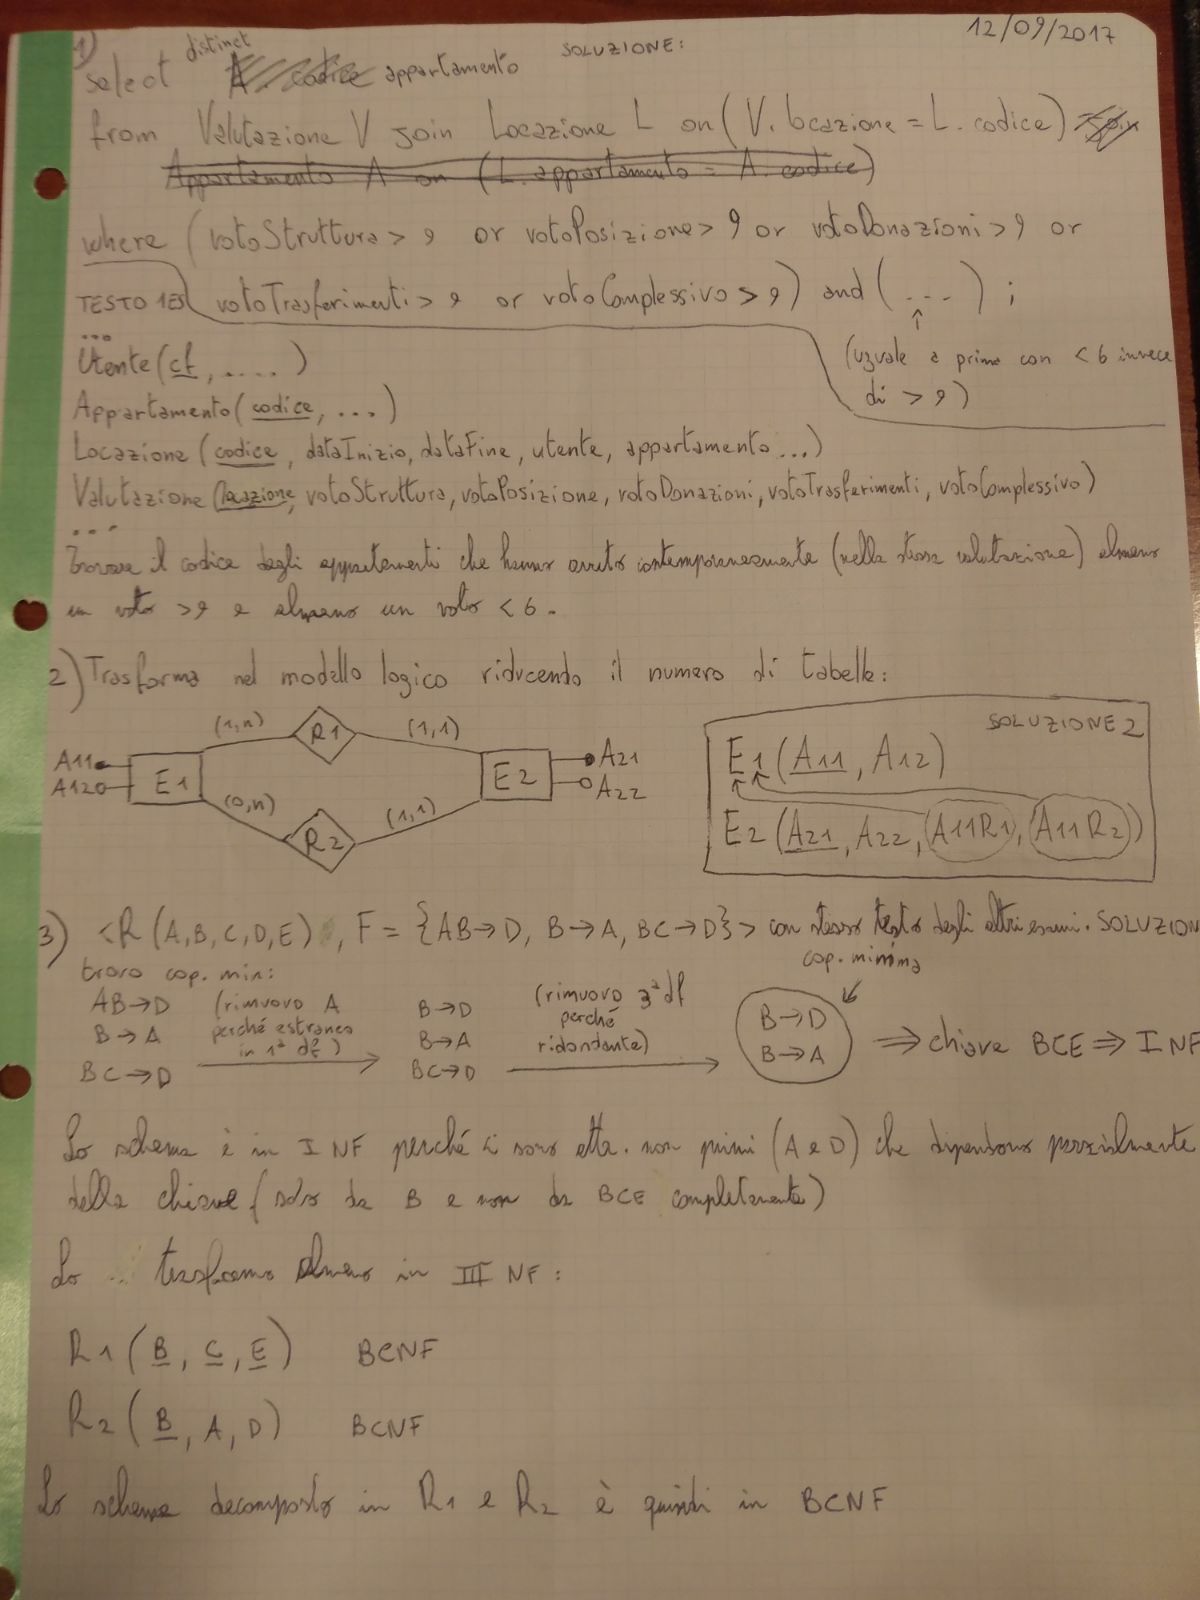 12/09/2017
1)
distinct
SOLUZIONE:
select A. codice appartamento
from Valutazione V join Locazione L on (V. locazione = L. codice) join
Appartamento A on (L. appartamento = A. codice)
where (votoStruttura > 9 or votoPosizione > 9 or votoDonazioni > 9 or
votoTrasferimenti > 9 or votoComplessivo > 9) and (...);
TESTO 1ES
...
(uguale a prima con < 6 invece
di > 9)
Utente (cf, .....)
Appartamento (codice, ...)
Locazione (codice, dataInizio, dataFine, utente, appartamento ...)
Valutazione (locazione, votoStruttura, votoPosizione, votoDonazioni, votoTrasferimenti, votoComplessivo)
...
Trovare il codice degli appartamenti che hanno avuto contemporaneamente (nella stessa valutazione) almeno
un voto > 9 e almeno un voto < 6.
2) Trasforma nel modello logico riducendo il numero di tabelle:
(1,n) R1 (1,1)
A11
A12
E1
E2
A21
A22
(0,n) R2 (1,1)
SOLUZIONE 2
E1 (A11, A12)
E2 (A21, A22, A11R1, A11R2)
3) <R (A,B,C,D,E), F = {AB→D, B→A, BC→D}> con stesso testo degli altri esami. SOLUZION
trovo cop. min:
cop. minima
AB→D (rimuovo A
B→A perché estraneo
in 1ª df)
BC→D
B→D
B→A
BC→D
(rimuovo 3ª df
perché
ridondante)
B→D
B→A
⇒ chiave BCE ⇒ I NF
Lo schema è in I NF perché ci sono att. non primi (A e D) che dipendono parzialmente
dalla chiave (solo da B e non da BCE completamente)
Lo trasformo almeno in III NF:
R1 (B, C, E) BCNF
R2 (B, A, D) BCNF
Lo schema decomposto in R1 e R2 è quindi in BCNF